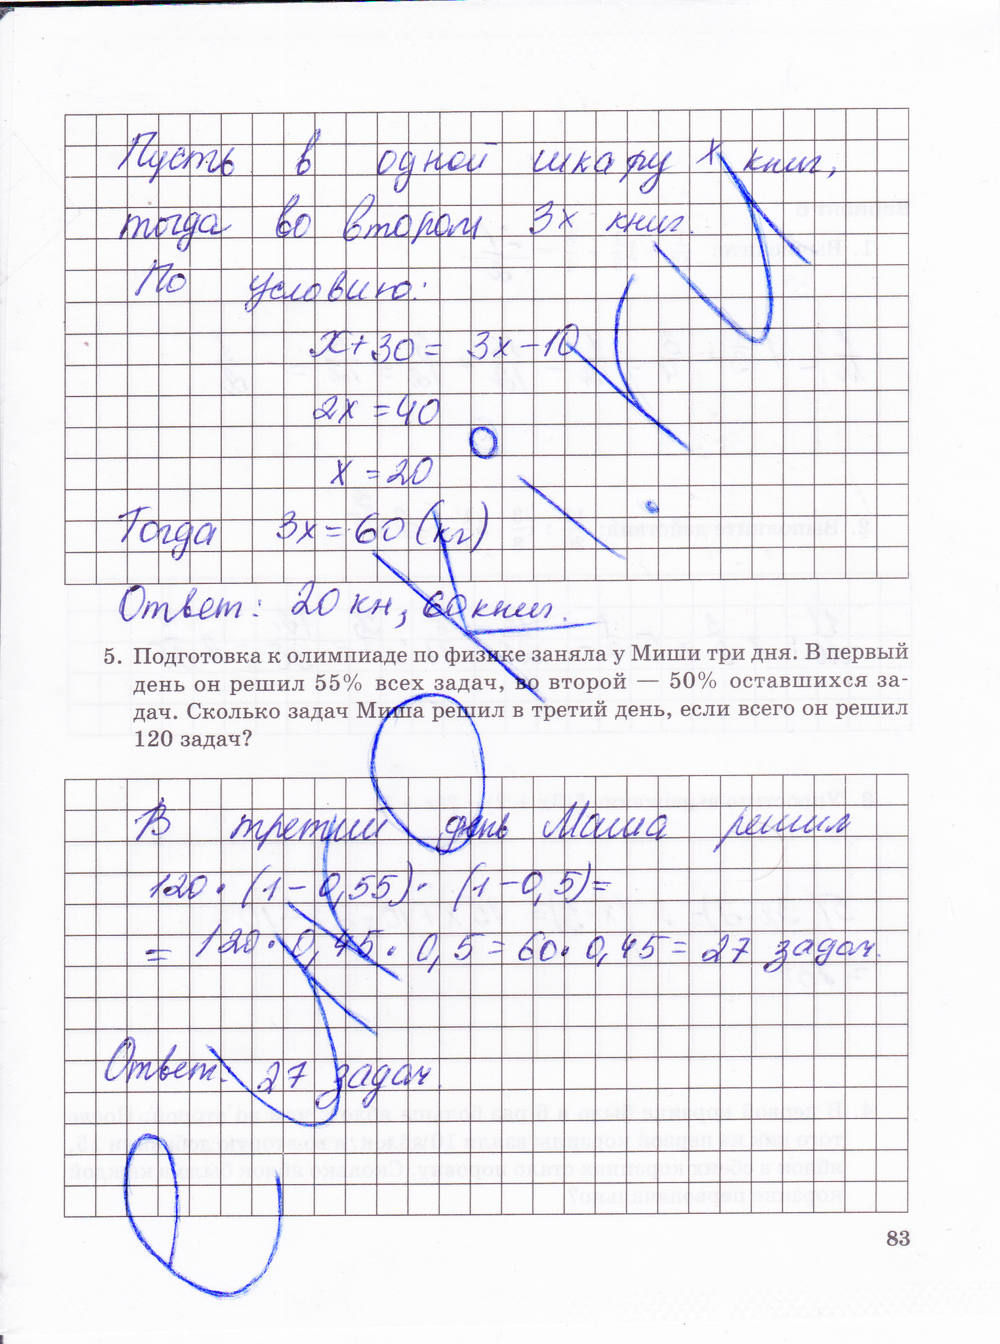 Пусть в одной шкафу x книг,
тогда во втором 3x книг.
По условию:
x+30 = 3x-10
2x = 40
x = 20
Тогда 3x = 60 (кг)
Ответ: 20 кн, 60 книг.
5. Подготовка к олимпиаде по физике заняла у Миши три дня. В первый
день он решил 55% всех задач, во второй — 50% оставшихся за-
дач. Сколько задач Миша решил в третий день, если всего он решил
120 задач?
В третий день Маша решил
120·(1-0,55)·(1-0,5)=
= 120·0,45·0,5 = 60·0,45 = 27 задач.
Ответ: 27 задач.
83